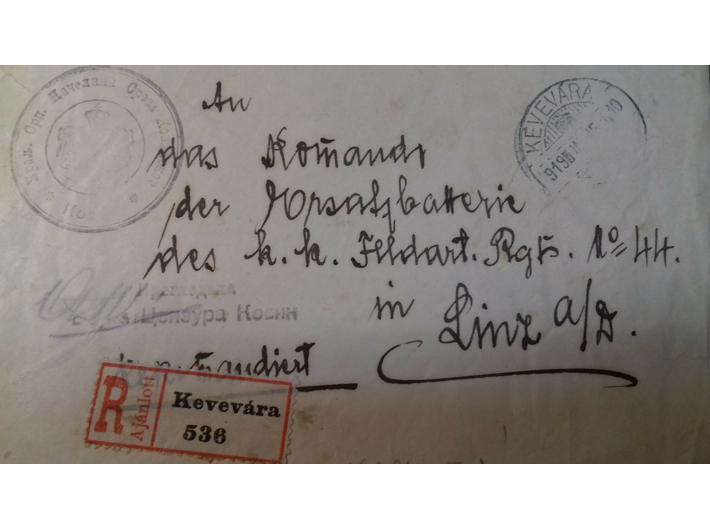 Краљ. Срп. Начелник Среза
KEVEVÁRA
919
An
das Komando
der Ersatzbatterie
des k. k. Feldart. Rgts. No 44.
in Linz a/D.
Цензура Ковин
R
Ajánlott
Kevevára
536